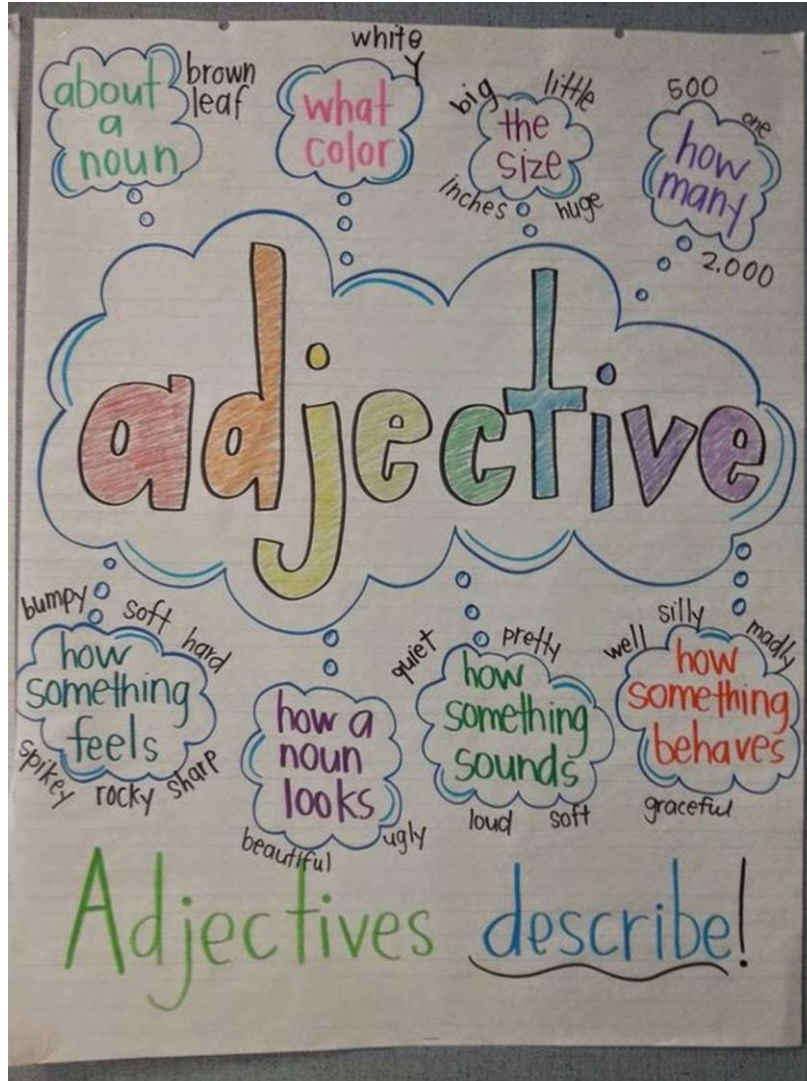 white
Y
about
a
noun
brown
leaf
what
color
big
little
the
size
inches
huge
500
one
how
many
2.000
adjective
bumpy
soft
hard
how
something
feels
spikey
rocky
sharp
how a
noun
looks
beautiful
ugly
quiet
pretty
how
something
sounds
loud
soft
well
silly
madly
how
something
behaves
graceful
Adjectives describe!